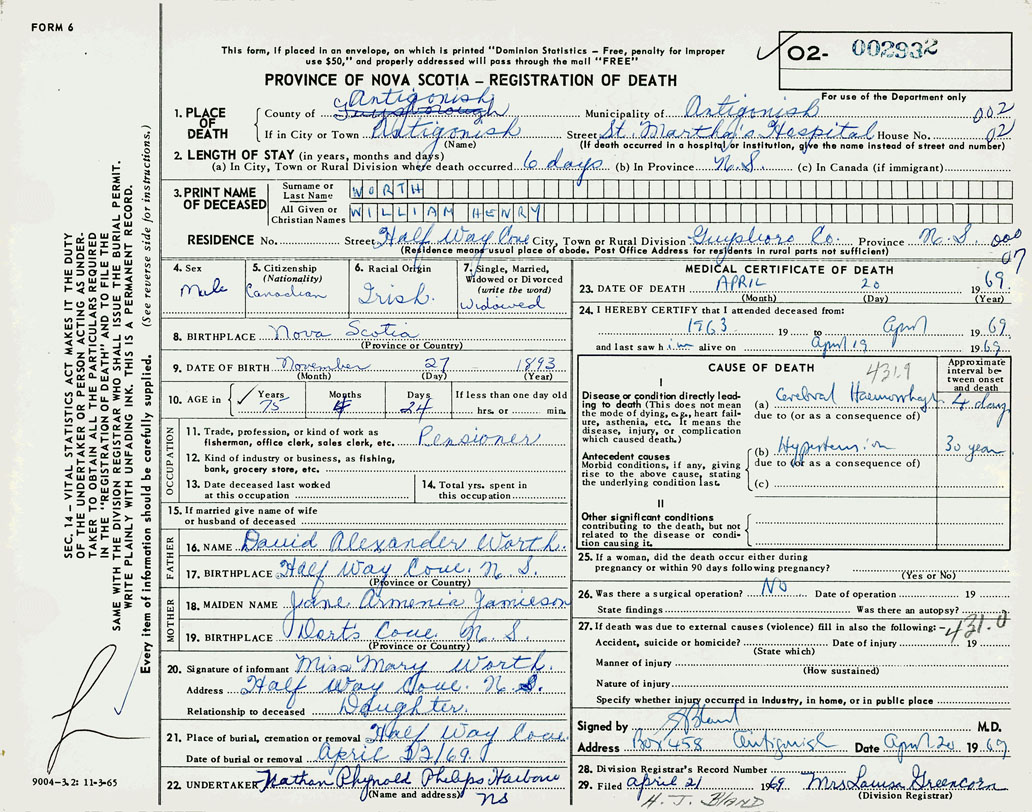 FORM 6
This form, if placed in an envelope, on which is printed "Dominion Statistics – Free, penalty for improper
use $50," and properly addressed will pass through the mail "FREE"
O2- 002932
For use of the Department only
PROVINCE OF NOVA SCOTIA – REGISTRATION OF DEATH
1. PLACE OF DEATH
County of Guysborough Antigonish Municipality of Antigonish 002
If in City or Town Antigonish Street St. Martha's Hospital House No. 02
(Name) (If death occurred in a hospital or institution, give the name instead of street and number)
2. LENGTH OF STAY (in years, months and days)
(a) In City, Town or Rural Division where death occurred 6 days (b) In Province N.S. (c) In Canada (if immigrant)
3. PRINT NAME OF DECEASED
Surname or Last Name WORTH
All Given or Christian Names WILLIAM HENRY
RESIDENCE No. Street Half Way Cove City, Town or Rural Division Guysboro Co. Province N.S. 000
(Residence means usual place of abode. Post Office Address for residents in rural parts not sufficient) 07
4. Sex Male
5. Citizenship (Nationality) Canadian
6. Racial Origin Irish.
7. Single, Married, Widowed or Divorced (write the word) Widowed
8. BIRTHPLACE Nova Scotia
(Province or Country)
9. DATE OF BIRTH November 27 1893
(Month) (Day) (Year)
10. AGE in Years 75 Months 4 Days 24 If less than one day old hrs. or min.
OCCUPATION
11. Trade, profession, or kind of work as fisherman, office clerk, sales clerk, etc. Pensioner
12. Kind of industry or business, as fishing, bank, grocery store, etc.
13. Date deceased last worked at this occupation
14. Total yrs. spent in this occupation
15. If married give name of wife or husband of deceased
FATHER
16. NAME David Alexander Worth.
17. BIRTHPLACE Half Way Cove. N. S.
(Province or Country)
MOTHER
18. MAIDEN NAME Jane Armenia Jamieson
19. BIRTHPLACE Dorts Cove N. S.
(Province or Country)
20. Signature of informant Miss Mary Worth.
Address Half Way Cove. N. S.
Relationship to deceased Daughter.
21. Place of burial, cremation or removal Half Way Cove.
Date of burial or removal April 22/69.
22. UNDERTAKER Nathan Philips Harbour
(Name and address) NS
MEDICAL CERTIFICATE OF DEATH
23. DATE OF DEATH APRIL 20 1969.
(Month) (Day) (Year)
24. I HEREBY CERTIFY that I attended deceased from:
1963 19 to April 1969
and last saw him alive on April 19 1969.
CAUSE OF DEATH 431.9
Approximate interval between onset and death
I
Disease or condition directly leading to death (This does not mean the mode of dying, e.g., heart failure, asthenia, etc. It means the disease, injury, or complication which caused death.)
(a) Cerebral Haemorrhage 4 days
due to (or as a consequence of)
Antecedent causes
Morbid conditions, if any, giving rise to the above cause, stating the underlying condition last.
(b) Hypertension 30 years
due to (or as a consequence of)
(c)
II
Other significant conditions contributing to the death, but not related to the disease or condition causing it.
25. If a woman, did the death occur either during pregnancy or within 90 days following pregnancy?
(Yes or No)
26. Was there a surgical operation? NO Date of operation 19
State findings Was there an autopsy?
27. If death was due to external causes (violence) fill in also the following: 431.0
Accident, suicide or homicide? Date of injury 19
(State which)
Manner of injury
(How sustained)
Nature of injury
Specify whether injury occurred in industry, in home, or in public place
Signed by HJBland M.D.
Address Box 458 Antigonish Date April 20 1969
28. Division Registrar's Record Number
29. Filed April 21 1969 Mrs Louise Greencorn
H. J. BLAND (Division Registrar)
SEC. 14 – VITAL STATISTICS ACT MAKES IT THE DUTY
OF THE UNDERTAKER OR PERSON ACTING AS UNDER-
TAKER TO OBTAIN ALL THE PARTICULARS REQUIRED
IN THE "REGISTRATION OF DEATH" AND TO FILE THE
SAME WITH THE DIVISION REGISTRAR WHO SHALL ISSUE THE BURIAL PERMIT.
WRITE PLAINLY WITH UNFADING INK. THIS IS A PERMANENT RECORD.
Every item of information should be carefully supplied. (See reverse side for instructions.)
9004-3.2: 11-3-65